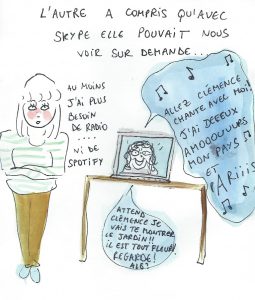 L'AUTRE A COMPRIS QU'AVEC
SKYPE ELLE POUVAIT NOUS
VOIR SUR DEMANDE...
AU MOINS
J'AI PLUS
BESOIN DE
RADIO
....
NI DE
SPOTIFY
ALLEZ CLÉMENCE
CHANTE AVEC MOI!
J'AI DEEEUX
AMOOOUUURS
MON PAYS
ET
PARiiiS
ATTEND
CLÉMENCE JE
VAIS TE MONTRER
LE JARDIN!!
IL EST TOUT FLEURI
REGARDE!